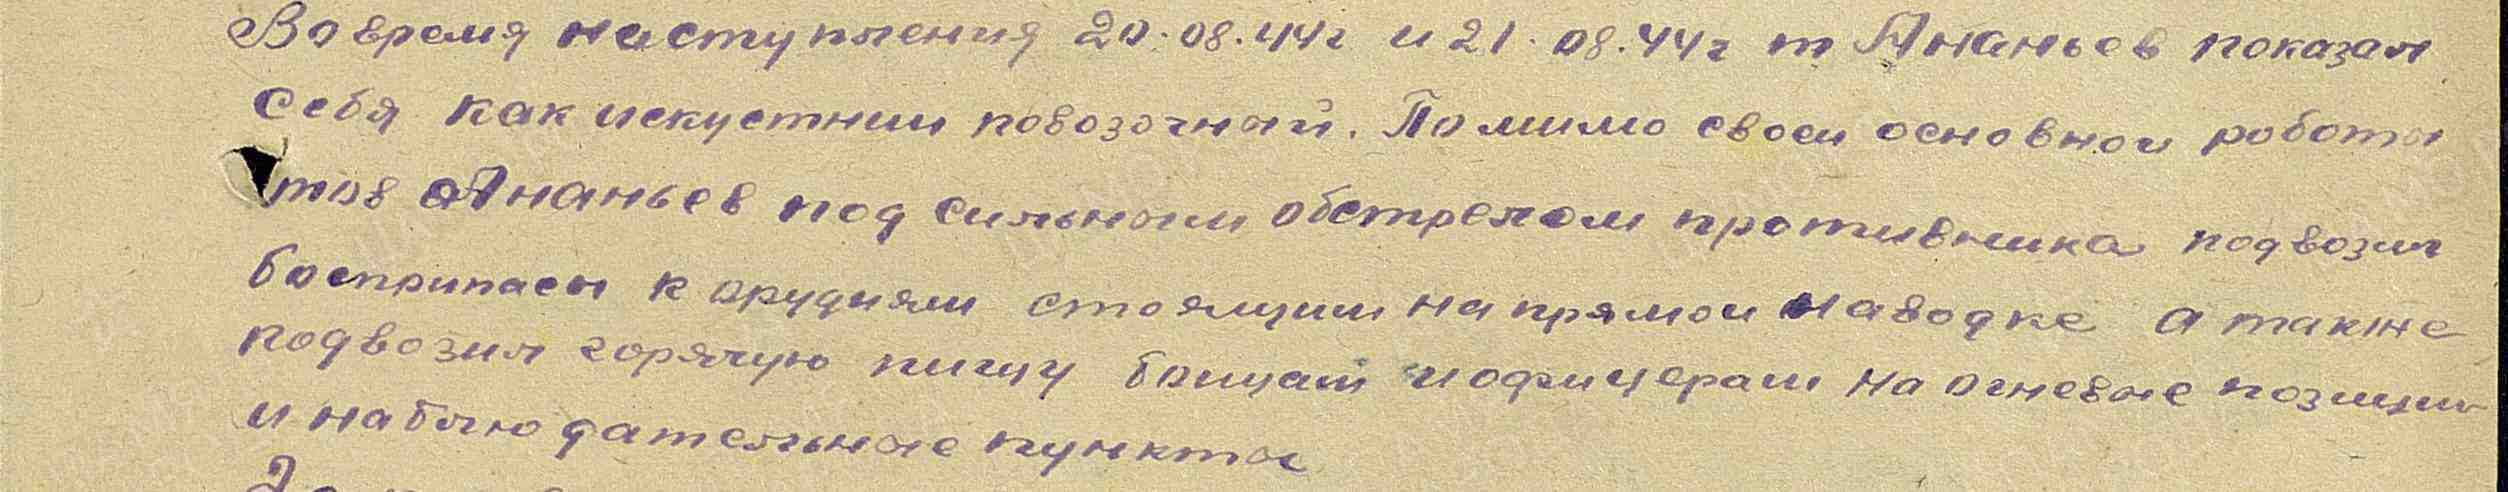 Во время наступления 20.08.44г и 21.08.44г т Ананьев показал
себя как искустний повозочный. Помимо своей основной роботы
тов Ананьев под сильным обстрелом противника подвозил
боеприпасы к орудиям стоящим на прямой наводке а также
подвозил горячую пищу бойцам и офицерам на огневые позиции
и наблюдательные пункты